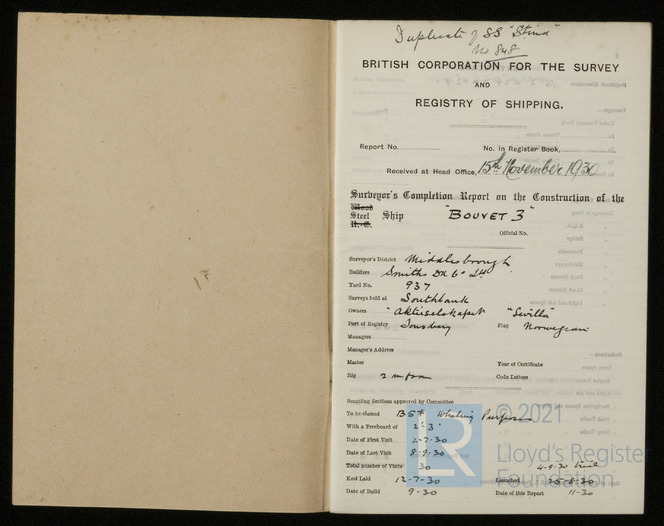 Duplicate of SS "Stind"
No 848
BRITISH CORPORATION FOR THE SURVEY
AND
REGISTRY OF SHIPPING.
Report No. No. in Register Book,
Received at Head Office, 15th November 1930
Surveyor's Completion Report on the Construction of the
Wood
Steel Ship "BOUVET 3"
Official No.
Surveyor's District Middlesbrough
Builders Smiths Dk Co Ld
Yard No. 937
Surveys held at Southbank
Owners "Aktieselskapet "Sevilla"
Port of Registry Tonsberg Flag Norwegian
Managers
Manager's Address
Master Year of Certificate
Rig Code Letters
Scantling Sections approved by Committee
To be classed BS* Whaling Purposes
With a Freeboard of 2' 3"
Date of First Visit 2-7-30
Date of Last Visit 8-9-30
Total number of Visits 30 4-9-30 trial
Keel Laid 12-7-30 Launched 20-8-30
Date of Build 9-30 Date of this Report 11-30
LR © 2021
Lloyd's Register
Foundation